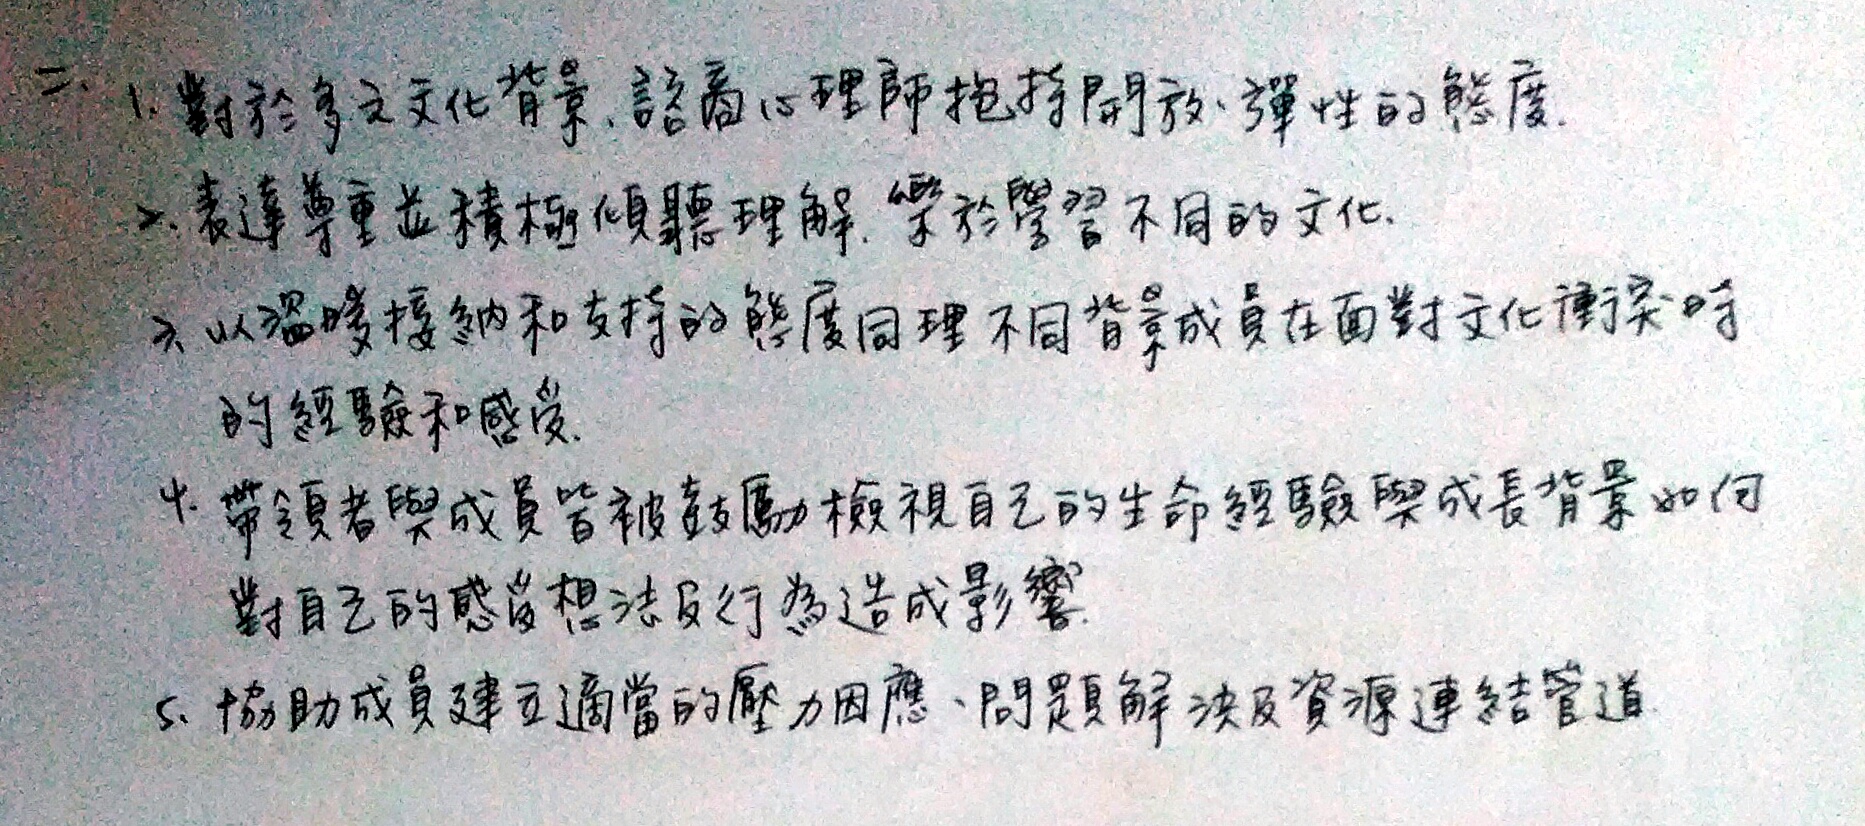 二、1. 對於多元文化背景,諮商心理師抱持開放、彈性的態度.
2. 表達尊重並積極傾聽理解,樂於學習不同的文化.
3. 以溫暖接納和支持的態度同理不同背景成員在面對文化衝突時
的經驗和感受.
4. 帶領者與成員皆被鼓勵檢視自己的生命經驗與成長背景如何
對自己的感受想法及行為造成影響.
5. 協助成員建立適當的壓力因應、問題解決及資源連結管道.